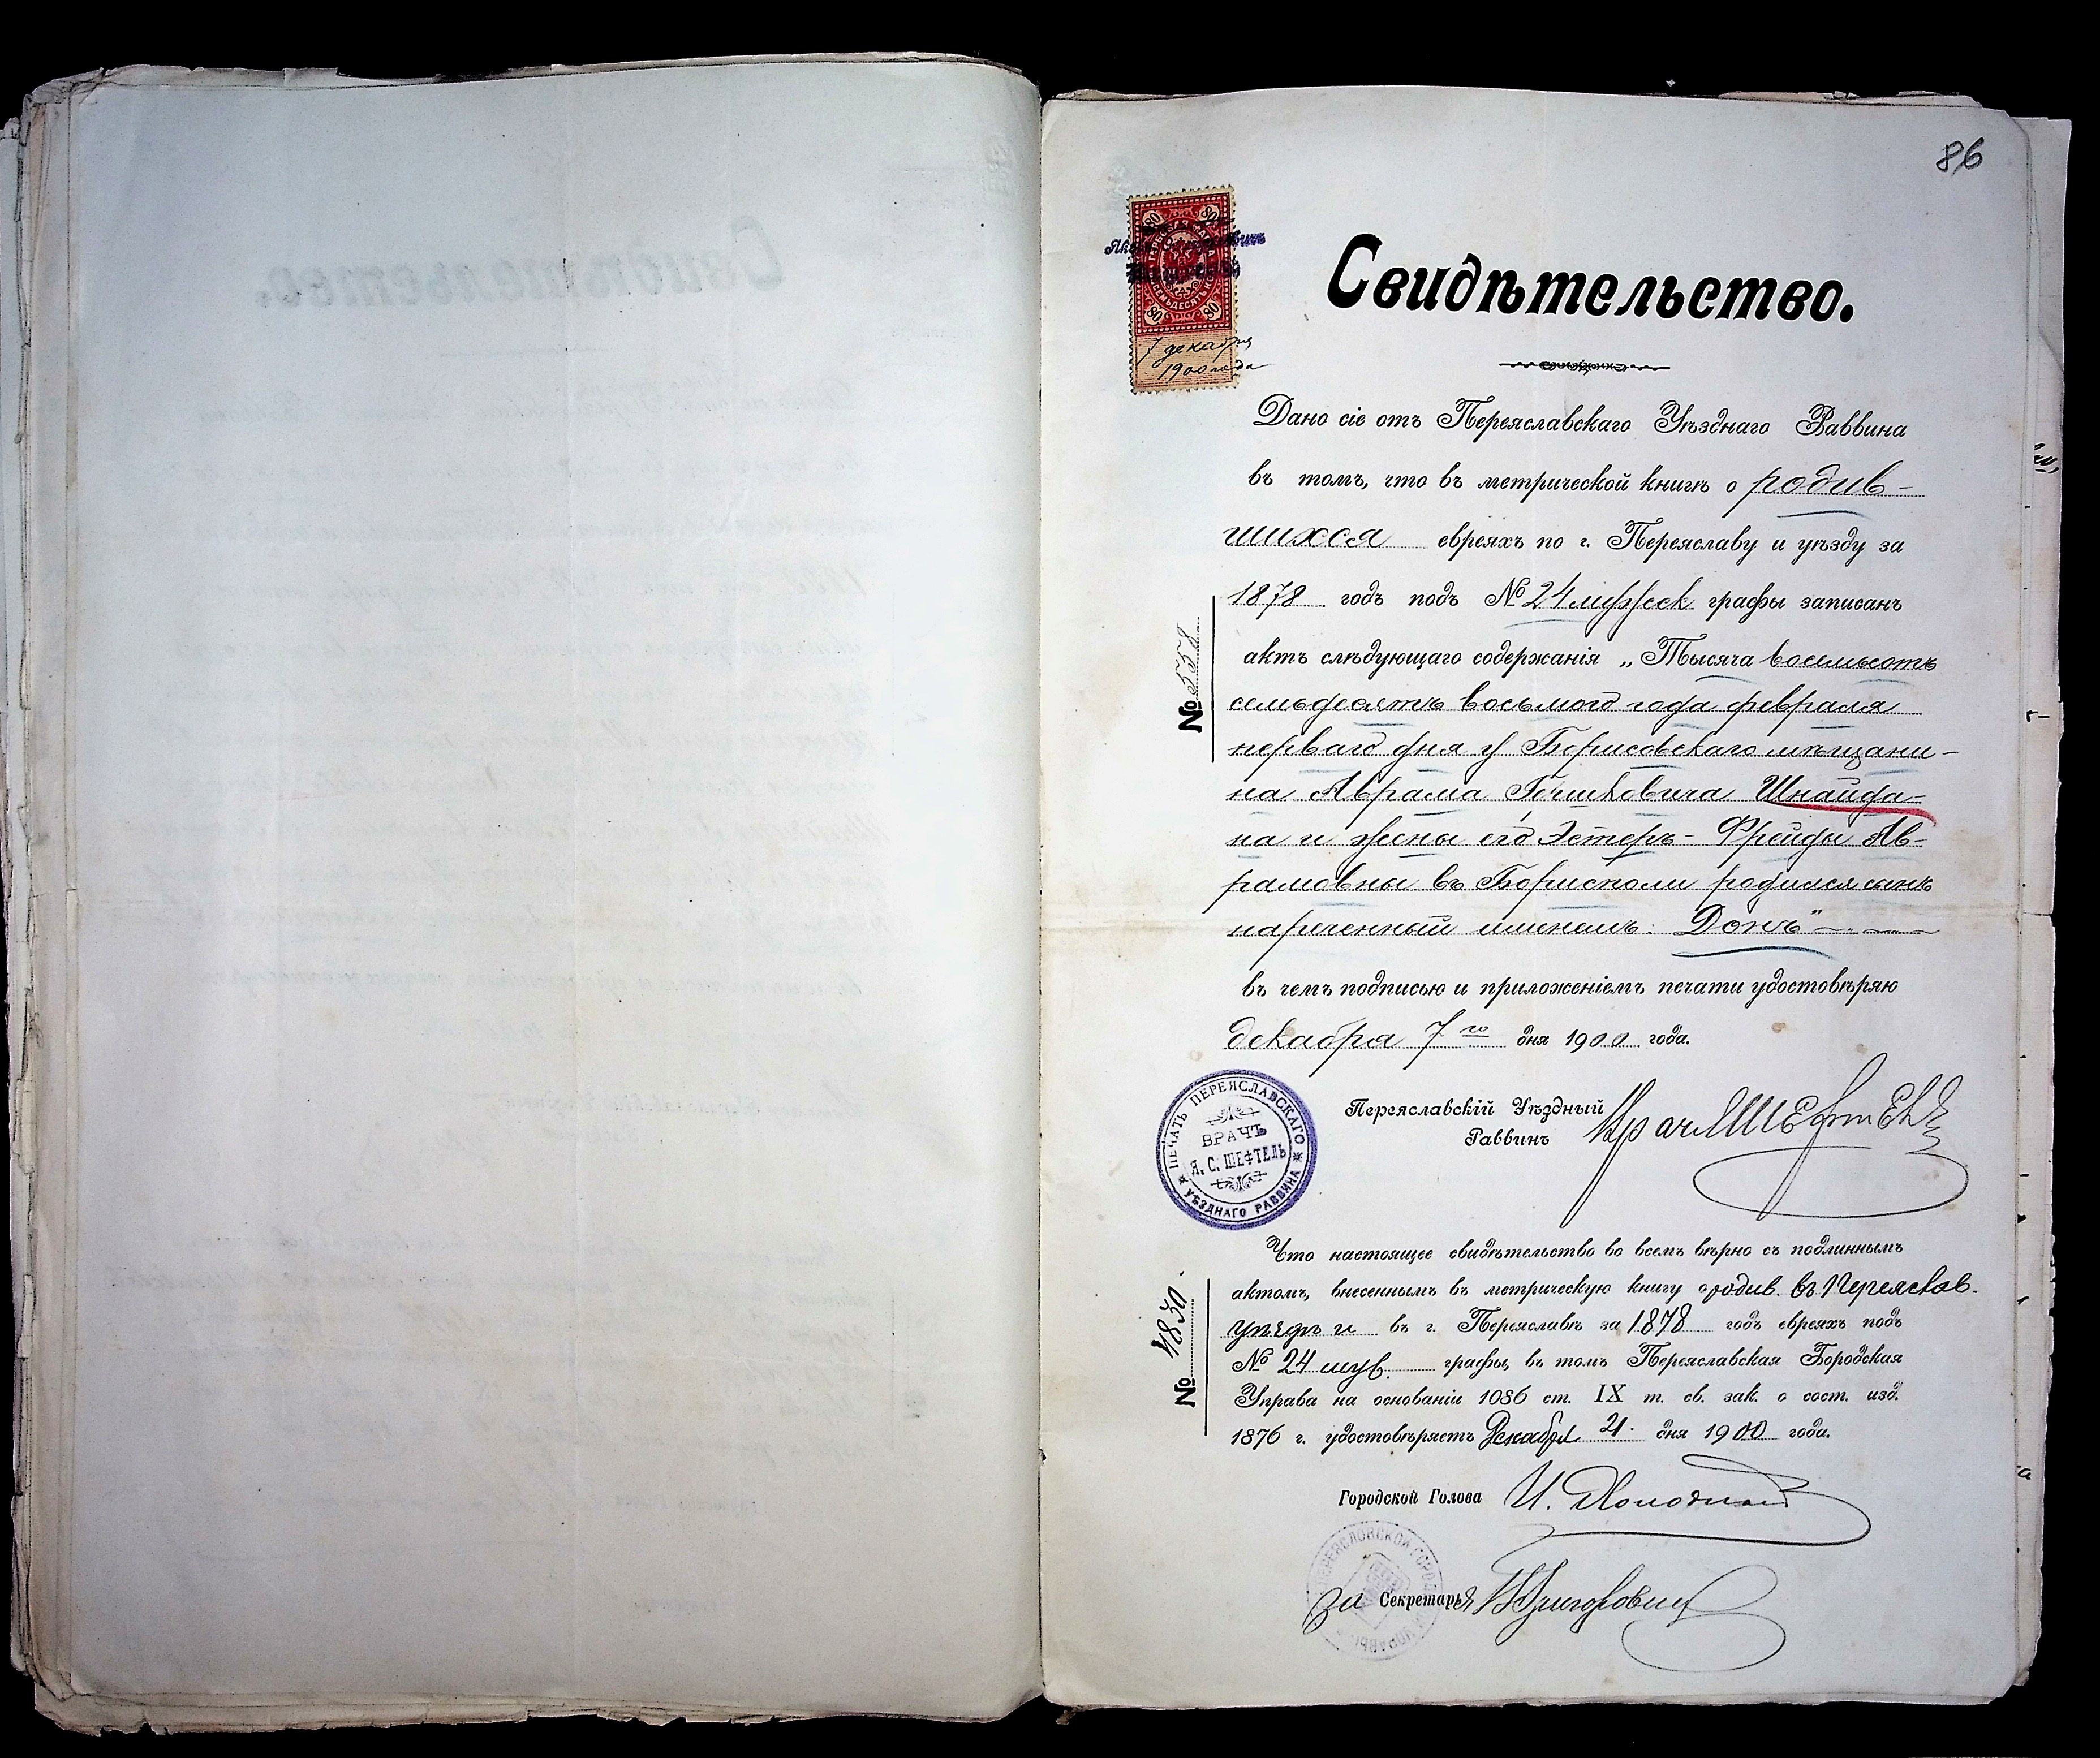 86
80 80
80 80
7 декабря
1900 года
Свидѣтельство.
Дано сіе отъ Переяславскаго Уѣзднаго Раввина
въ томъ, что въ метрической книгѣ о родив-
шихся евреяхъ по г. Переяславу и уѣзду за
1878 годъ подъ № 24 мужеск. графы записанъ
актъ слѣдующаго содержанія „Тысяча восемьсотъ
семьдесятъ восьмого года февраля
перваго дня у Борисовскаго мѣщани-
на Аврама Шнайда-
на и жены его Эстеръ-Фрейды Ав-
рамовны въ Борисполи родился сынъ
нареченный именемъ: Донъ"
въ чемъ подписью и приложеніемъ печати удостовѣряю
декабря 7го дня 1900 года.
№ 558
Переяславскій Уѣздный
Раввинъ Врач Шефтель
ПЕЧАТЬ ПЕРЕЯСЛАВСКАГО
УѢЗДНАГО РАВВИНА
ВРАЧЪ
Я. С. ШЕФТЕЛЬ
Что настоящее свидѣтельство во всемъ вѣрно съ подлиннымъ
актомъ, внесеннымъ въ метрическую книгу о родив. въ Переяслав.
уѣздѣ и въ г. Переяславѣ за 1878 годъ евреяхъ подъ
№ 24 муж. графы, въ томъ Переяславская Городская
Управа на основаніи 1086 ст. IX т. св. зак. о сост. изд.
1876 г. удостовѣряетъ Декабря 21. дня 1900 года.
№ 4830.
Городской Голова
за Секретаря Григорович